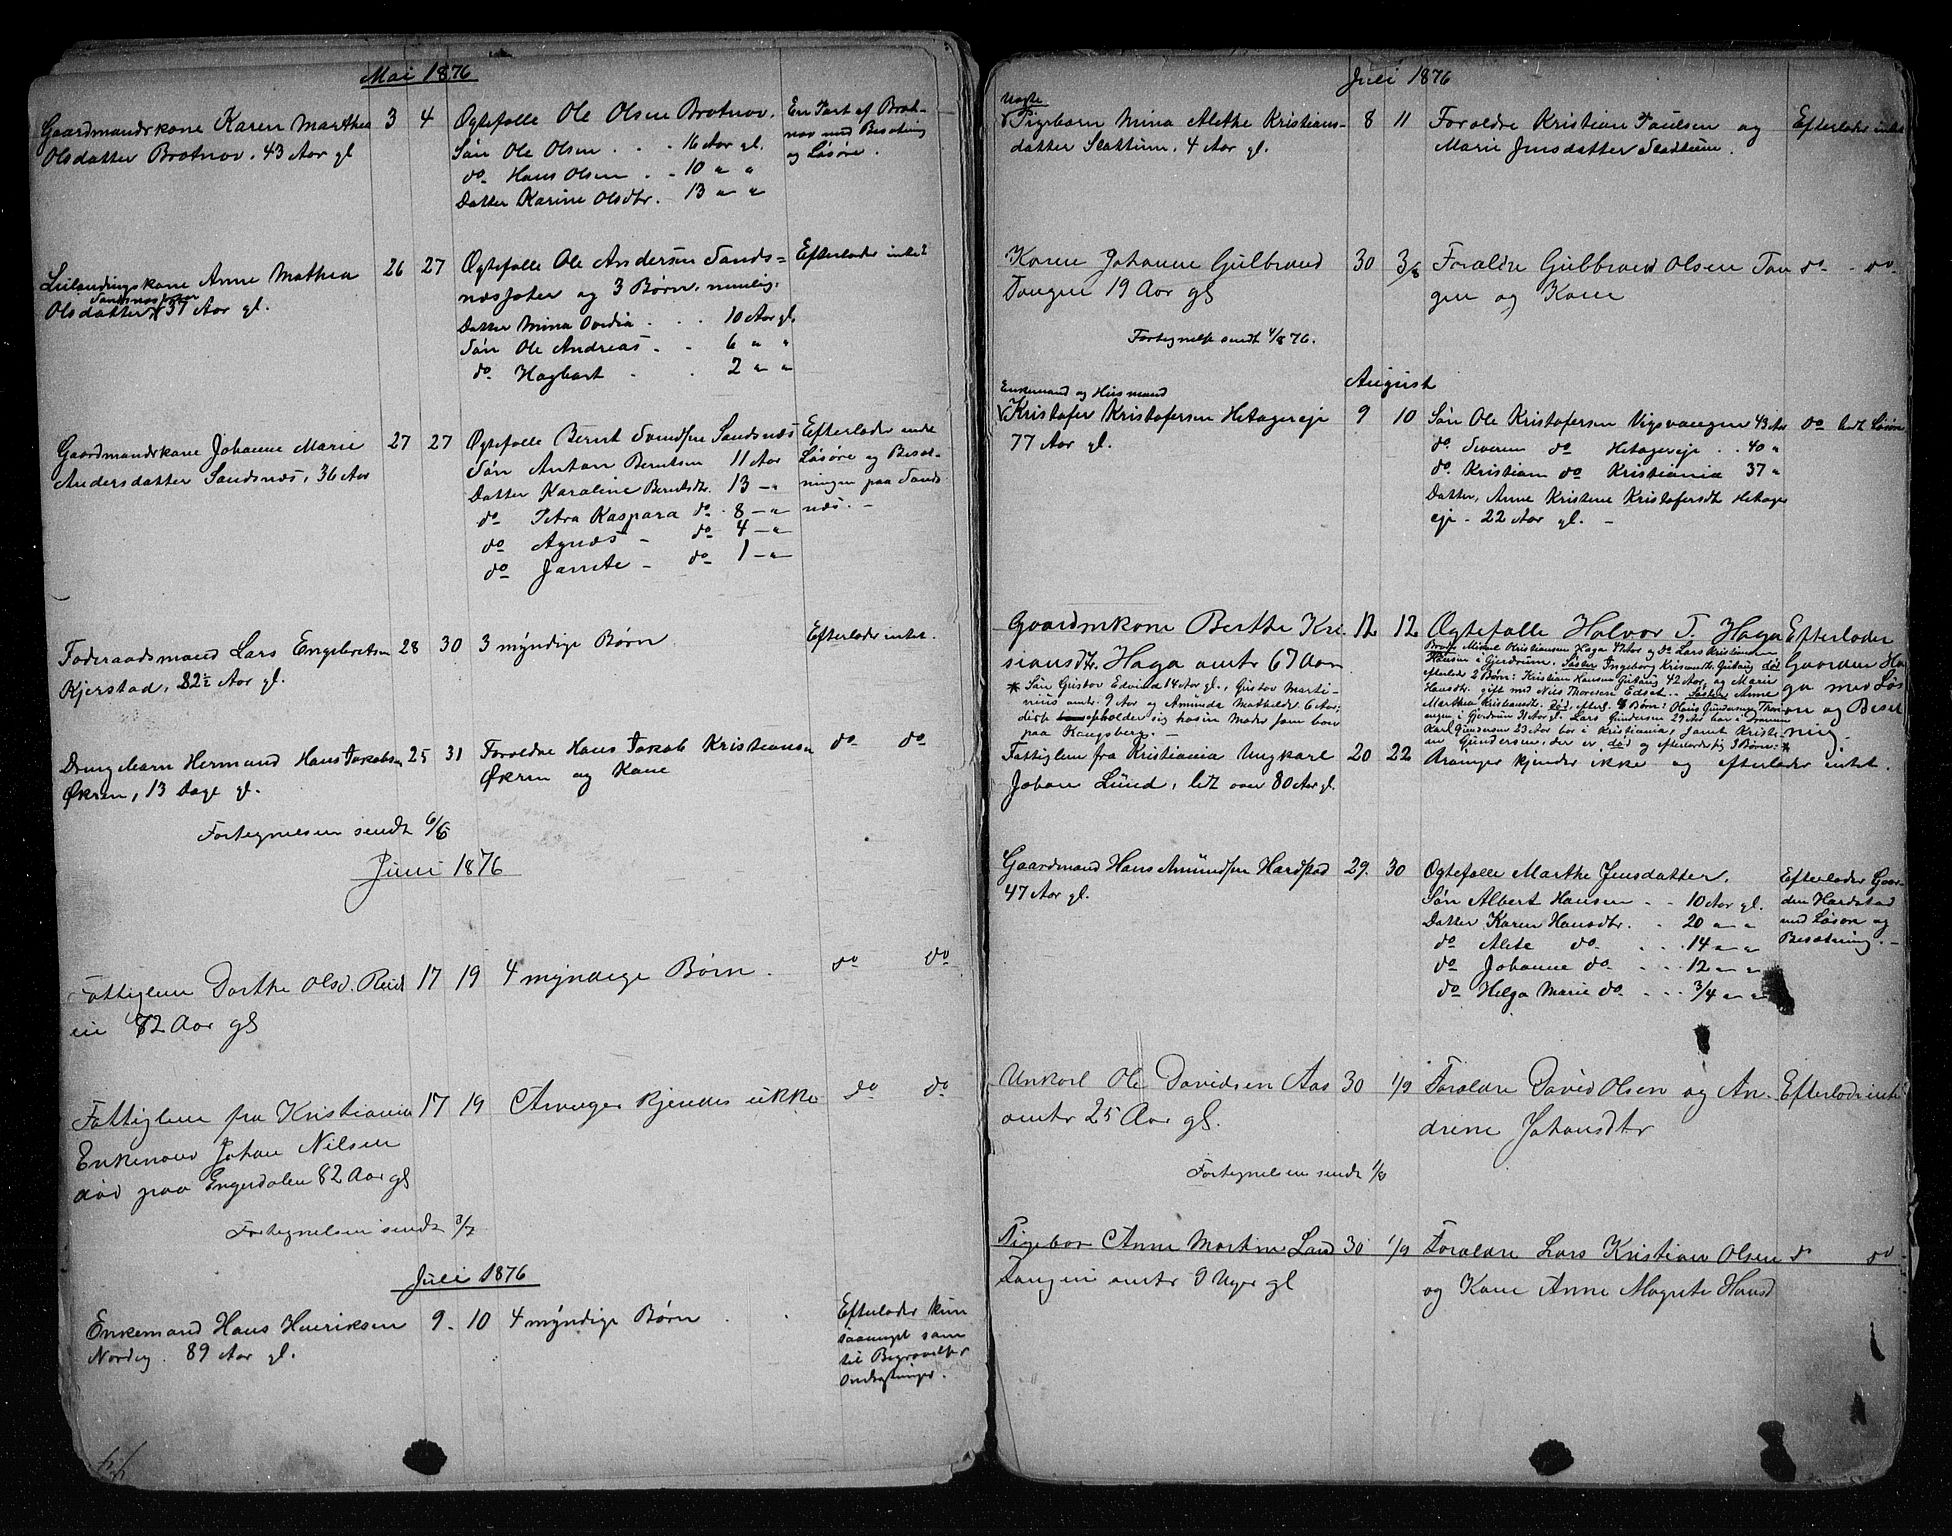 Mai 1876
Gaardmandskone Karen Marthea 3 4 Ogtefolle Ole Olsen Brotnov. En Part af Brot-
Olsdatter Brotnov. 43 Aar gl Søn Ole Olsen . . . 16 Aar gl. nov med Besætning
do Hans Olsen . . 10 " " og Løsøre.
Datter Karine Olsdtr. - 13 " "
Leilændingskone Anne Mathea 26 27 Ogtefolle Ole Andersen Sands- Efterlader intet
Sandsnæsjoter
Olsdatter 37 Aar gl. næsjoter og 3 Børn, nemlig:
Datter Mina Ovedia . . . 10 Aar gl.
Søn Ole Andreas . . 6 " "
do. Hagbart . . 2 " "
Gaardmandskone Johanne Marie 27 27 Ogtefolle Bernt Svendsen Sandsnæs Efterlader endel
Andersdatter Sandsnæs, 36 Aar Søn Anton Berntsen 11 Aar Løsøre og Besæt-
Datter Karoline Berntsdtr. 13 - " ningen paa Sands
do Petra Kaspara do . 8 - " næs. -
do Agnæs - do 4 - "
do Jamte - do 1 - "
Føderaadsmand Lars Engebretsen 28 30 3 myndige Børn Efterlader intet.
Kjerstad, 82½ Aar gl.
Drengebarn Hermand Hans Jakobsen 25 31 Foroldre Hans Jakob Kristiansen do do
Økren, 13 Dage gl. Økren og Kone
Fortegnelsen sendt 6/6
Juni 1876
Fattiglem Dorthe Olsd. 17 19 4 myndige Børn . do do
82 Aar gl
Fattiglem fra Kristiania 17 19 Arvinger kjendes ikke do do
Enkemand Johan Nilsen
død paa Engerdalen 82 Aar gl
Fortegnelsen sendt 3/7
Juli 1876
Enkemand Hans Henriksen 9 - 10 4 myndige Børn . . Efterlader kun
Nordeg. 89 Aar gl. saameget som
til Begravelse
Juli 1876
Pigebarn Mina Alethe Kristians- 8 11 Foroldre Kristian Paulsen og Efterlader intet
datter Slattum, 4 Aar gl. Marie Jensdatter Slattum.
Karen Johanne Gulbrand 30 3/8 Foroldre Gulbrand Olsen Tan do - do -
Tangen 19 Aar gl gen og Kone
Fortegnelse sendt 4/8 76.
August
Enkemand og Husmand
Kristofer Kristofersen Hetagereje 9 10 Søn Ole Kristofersen Vigsvangen 43 Aar do lidt Løsøre
77 Aar gl. do. Severin do Hetagereje . . 40 "
do. Kristian do Kristiania 37 "
Datter, Anne Kristine Kristofersdt Hetager
eje - 22 Aar gl. -
Gaardmkone Berthe Kri 12 12 Ogtefolle Halvor T. Haga Efterlader
siansdtr. Haga omtr 67 Aar Brødre Mikael Kristiansen Haga 47 Aar og do Lars Kristiansen Gaarden Ha
Hansen i Gjerdrum. Søster Ingeborg Kristiansdtr. Gutaug død ga med Løs
* Søn Gustav Edvind 14 Aar gl., Gustav Marti- efterlod 2 Børn: Kristian Hansen Gutaug 42 Aar og Marie øre og Beset
nius omtr. 9 Aar og Amunda Mathilde 6 Aar; Hansdtr. gift med Nils Thoresen Edset. - Søster Anne ning. -
disse opholder sig hos sin Moder som bor Marthea Kristiansdt. død, efterl. Børn: Hans Gundersen
paa Kongsberg. - i Gjerdrum 31 Aar gl. Lars Gundersen 29 Aar bor i Drammen
Karl Gundersen 23 Aar bor i Kristiania, samt Kristi-
an Gundersen, der er død og efterlader sig 3 Børn: *
Fattiglem fra Kristiania Ungkarl 20 22 Arvinger kjendes ikke og efterlader intet.
Johan Lund, lit over 80 Aar gl.
Gaardmand Hans Amundsen Hardstad 29. 30 Ogtefolle Marthe Jensdatter. Efterlader Gaar-
47 Aar gl. Søn Albert Hansen . . 10 Aar gl. den Hardstad
Datter Karen Hansdtr. . 20 " " med Løsøre og
do Alete do. . . 14 " " Besætning. -
do Johanne do . . 12 " "
do Helga Marie do . . . 3/4 " "
Unkarl Ole Davidsen Aas 30 1/9 Foroldre David Olsen og An- Efterlader intet
omtr 25 Aar gl. drine Johansdtr
Fortegnelsen sendt 1/9
Pigebar Anne Martine Sand 30 1/9 Foroldre Lars Kristian Olsen do do
Tangen omtr 9 Uger gl og Kone Anne Magrete Hansd